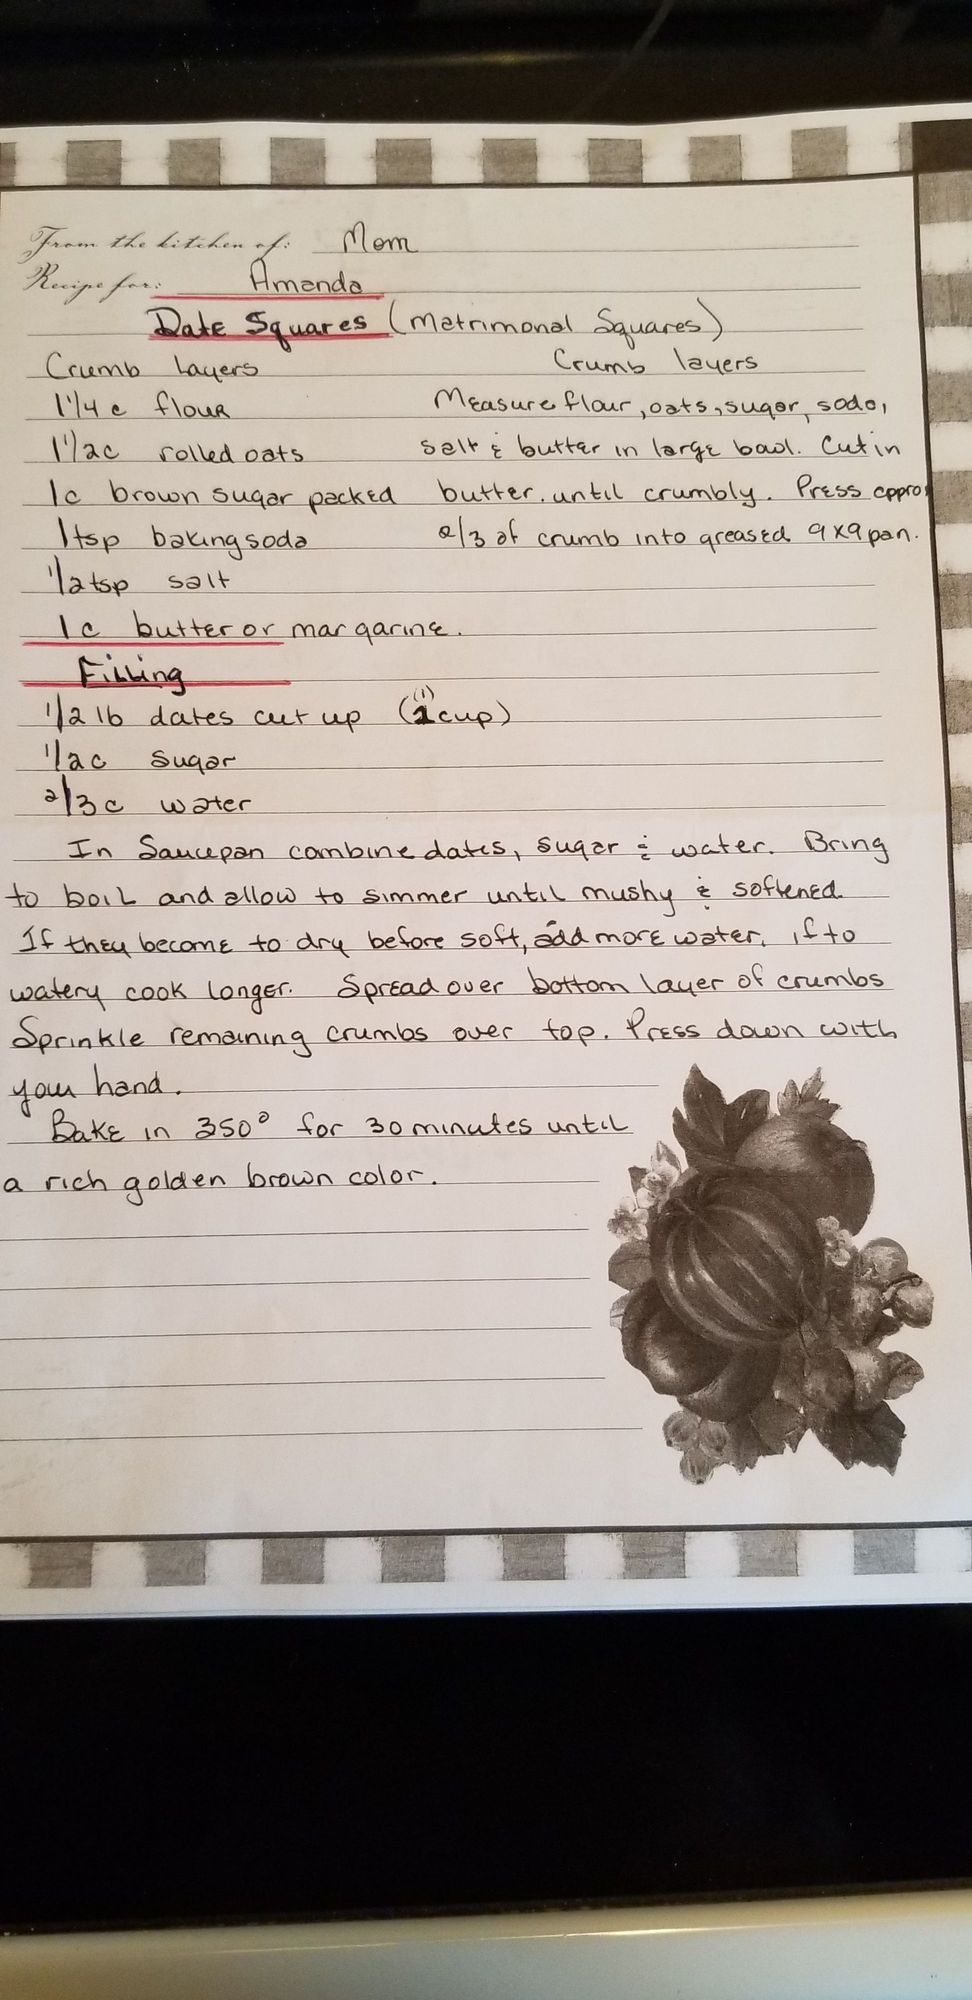 From the kitchen of: Mom
Recipe for: Amanda
Date Squares (Matrimonal Squares)
Crumb Layers Crumb layers
1 1/4 c flour Measure flour, oats, sugar, soda,
1 1/2 c rolled oats salt & butter in large bowl. Cut in
1c brown sugar packed butter. until crumbly. Press appro
1 tsp baking soda 2/3 of crumb into greased 9x9 pan.
1/2 tsp salt
1 c butter or margarine.
Filling
1/2 lb dates cut up (1 cup) (1)
1/2 c sugar
2/3 c water
In Saucepan combine dates, sugar & water. Bring
to boil and allow to simmer until mushy & softened.
If they become to dry before soft, add more water, if to
watery cook longer. Spread over bottom layer of crumbs
Sprinkle remaining crumbs over top. Press down with
your hand.
Bake in 350° for 30 minutes until
a rich golden brown color.